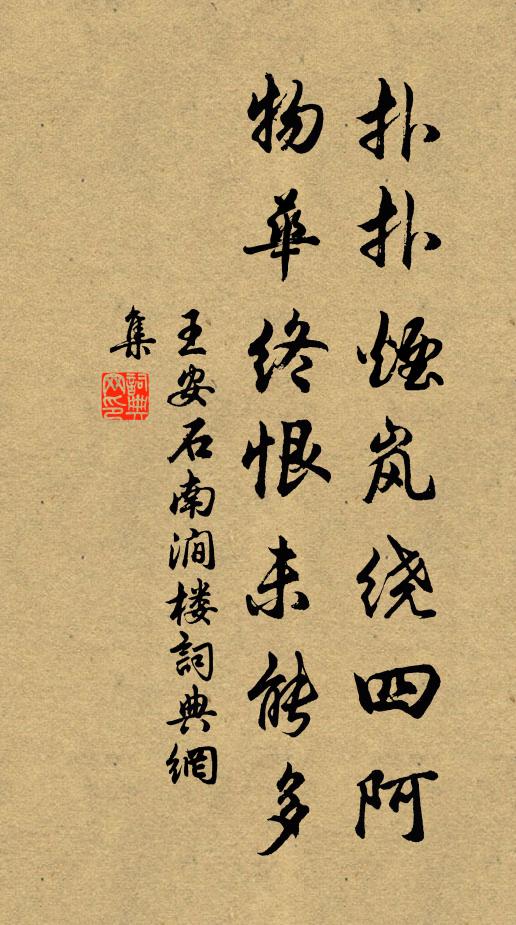 扑扑煙岚绕四阿
物华终恨未能多
王安石南涧楼詞典網
集
詞典网印